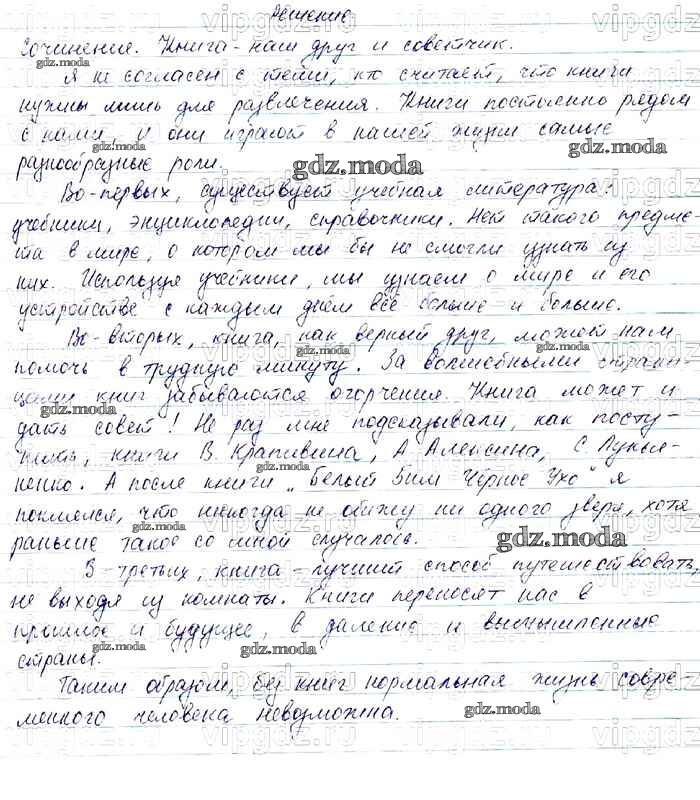 Решение
Сочинение. Книга - наш друг и советчик.
Я не согласен с теми, кто считает, что книги
нужны лишь для развлечения. Книги постоянно рядом
с нами, и они играют в нашей жизни самые
разнообразные роли.
Во-первых, существует учебная литература:
учебники, энциклопедии, справочники. Нет такого предме-
та в мире, о котором мы бы не смогли узнать из
них. Используя учебники, мы узнаем о мире и его
устройстве с каждым днём всё больше и больше.
Во-вторых, книга, как верный друг, может нам
помочь в трудную минуту. За волшебными страни-
цами книг забываются огорчения. Книга может и
дать совет! Не раз мне подсказывали, как посту-
пить, книги В. Крапивина, А. Алексина, С. Лукья-
ненко. А после книги „Белый Бим Чёрное Ухо" я
поклялся, что никогда не обижу ни одного зверя, хотя
раньше такое со мной случалось.
В-третьих, книга - лучший способ путешествовать,
не выходя из комнаты. Книги переносят нас в
прошлое и будущее, в далекие и вымышленные
страны.
Таким образом, без книг нормальная жизнь совре
менного человека невозможна.
gdz.moda
vipgdz.ru